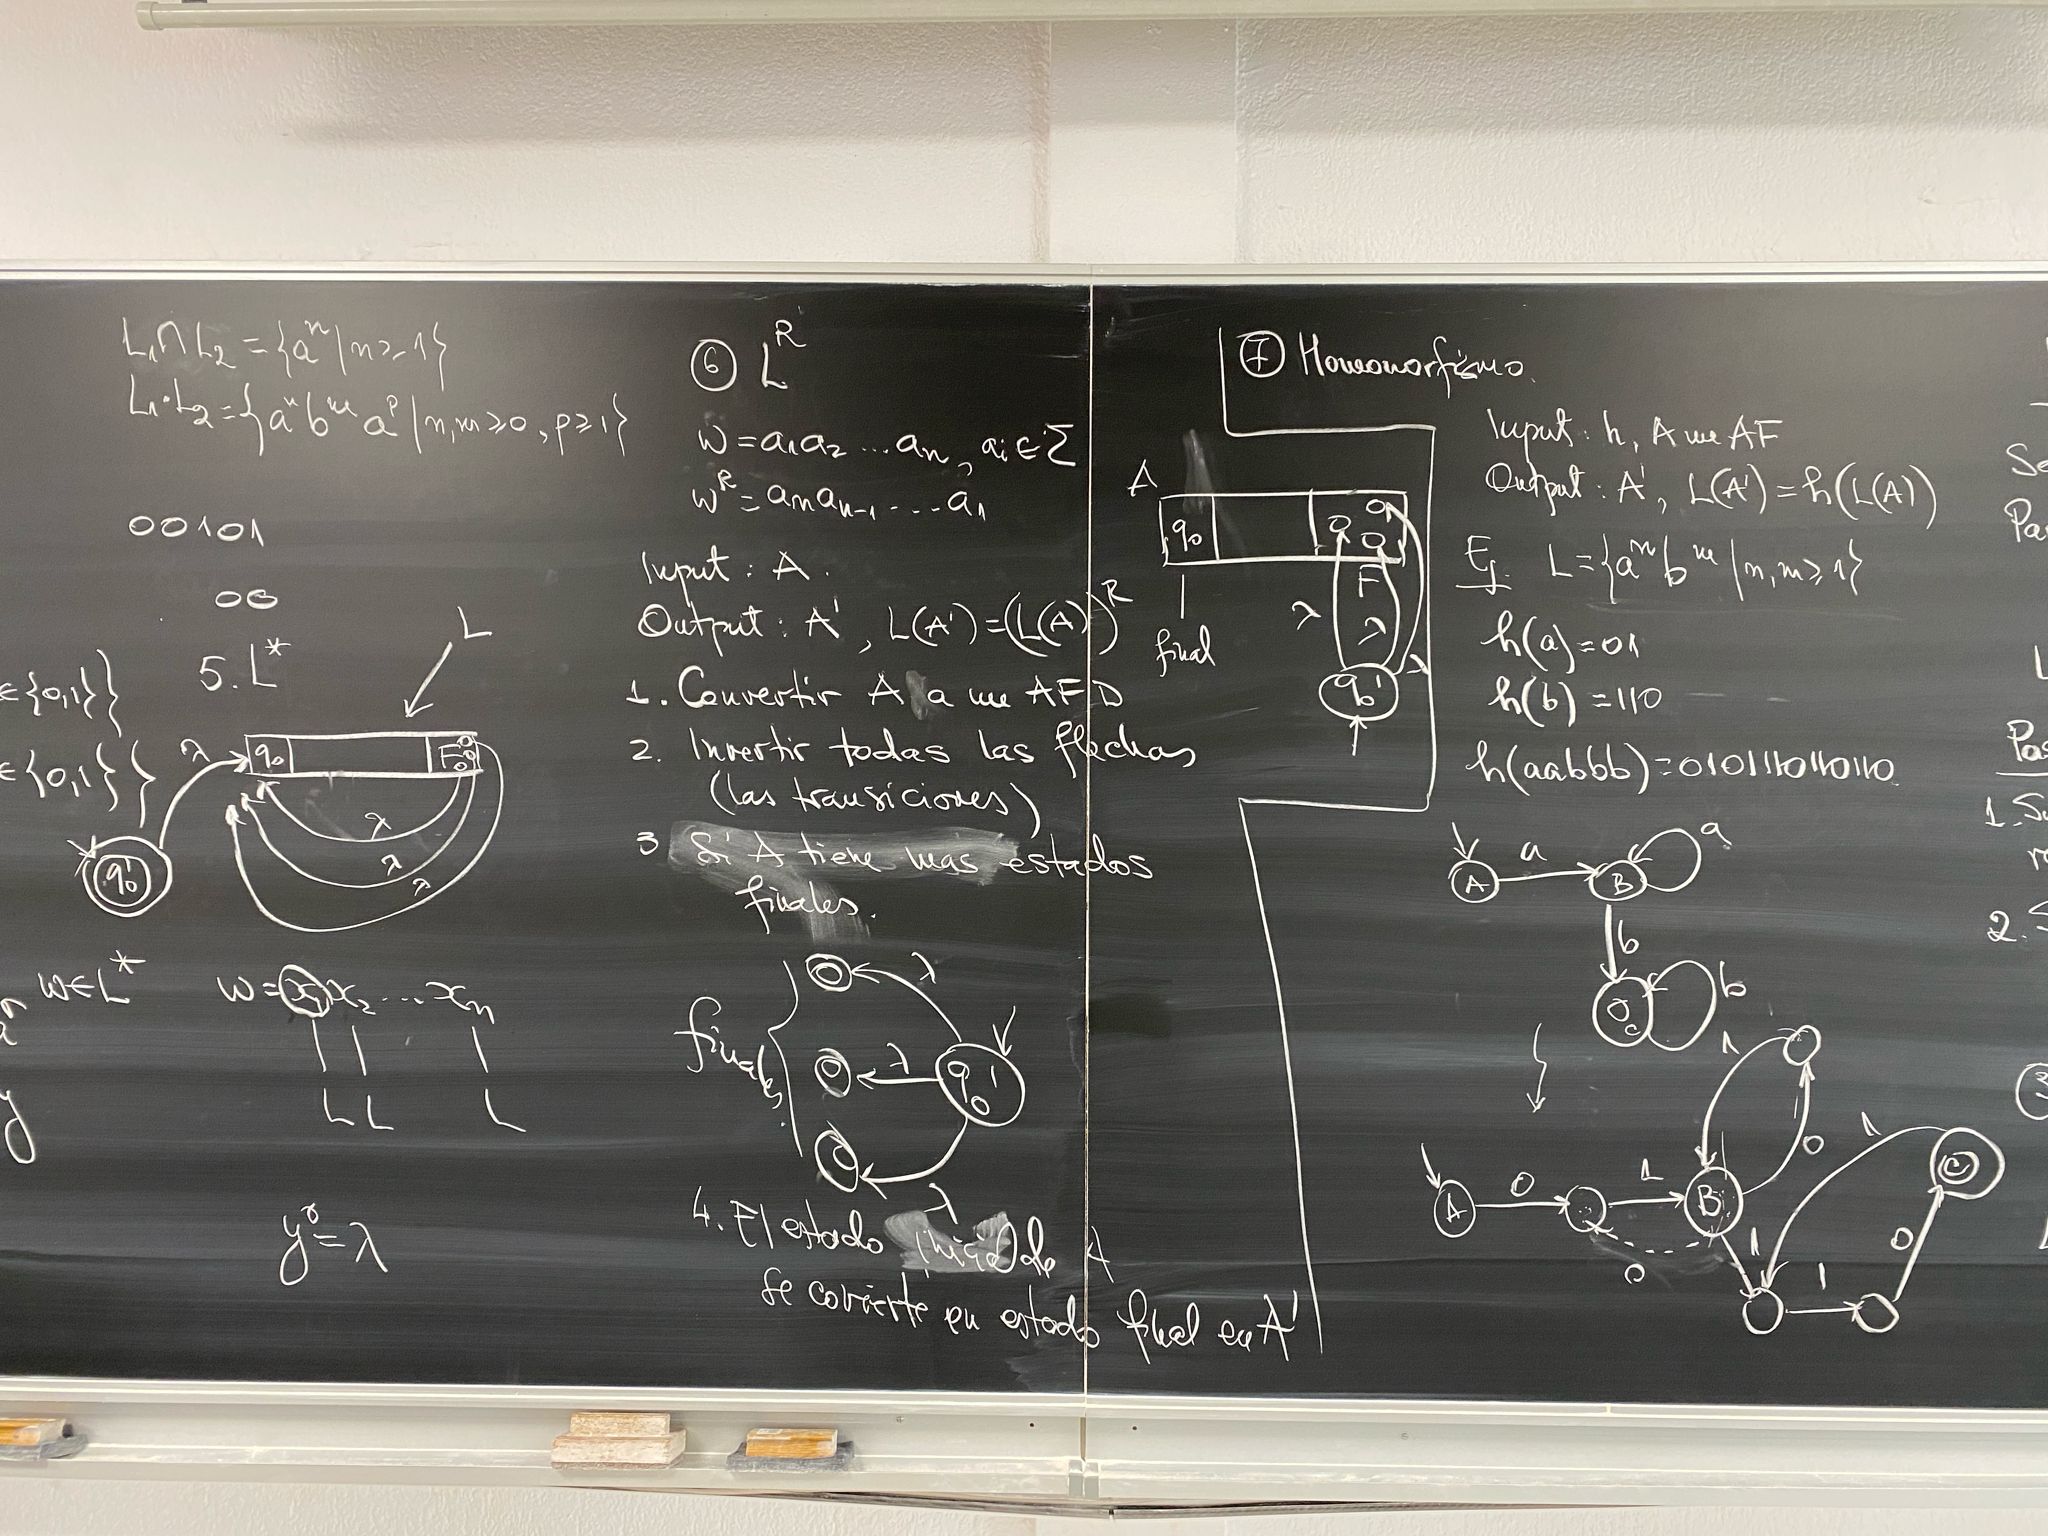 L₁∩L₂={aⁿ|n≥1}
L₁·L₂={aⁿbᵐaᵖ|n,m≥0, p≥1}
00101
00
∈{0,1}}
∈{0,1}}
5. L*
L
λ
q₀
F
λ
λ
λ
q₀'
w∈L*
w=x₁x₂...xₙ
L L L
y⁰=λ
⑥ Lᴿ
w=a₁a₂...aₙ, aᵢ∈Σ
wᴿ=aₙaₙ₋₁...a₁
Input: A.
Output: A', L(A')=(L(A))ᴿ
1. Convertir A a un AFD
2. Invertir todas las flechas
(las transiciones)
3 Si A tiene mas estados
finales.
finales.
λ
λ
λ
q₀'
4. El estado inicial de A
se covierte en estado final en A'
A
q₀
F
final
λ
λ
λ
q₀'
⑦ Homomorfismo.
Input: h, A un AF
Output: A', L(A')=h(L(A))
Ej. L={aⁿbᵐ|n,m≥1}
h(a)=01
h(b)=110
h(aabbb)=0101110110110
A a B a
b
C b
A 0 1 B
0
1
0
1 1 0
C
1
Se
Pa
1. Su
2.
3